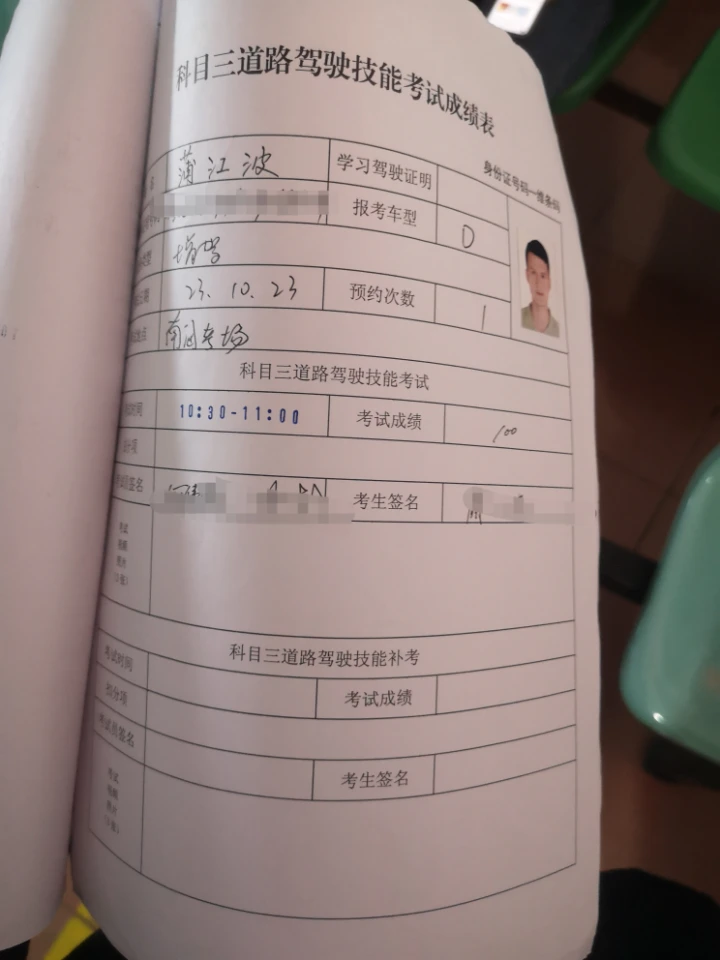 科目三道路驾驶技能考试成绩表
身份证号码一维条码
名 蒲江波 学习驾驶证明
报考车型 D
类型 增驾
日期 23.10.23 预约次数 1
地点
科目三道路驾驶技能考试
时间 10:30-11:00 考试成绩 100
扣分项
考试员签名 考生签名
考试
视频
照片
(3张)
科目三道路驾驶技能补考
考试时间
扣分项 考试成绩
考试员签名
考生签名
考试
视频
照片
(3张)